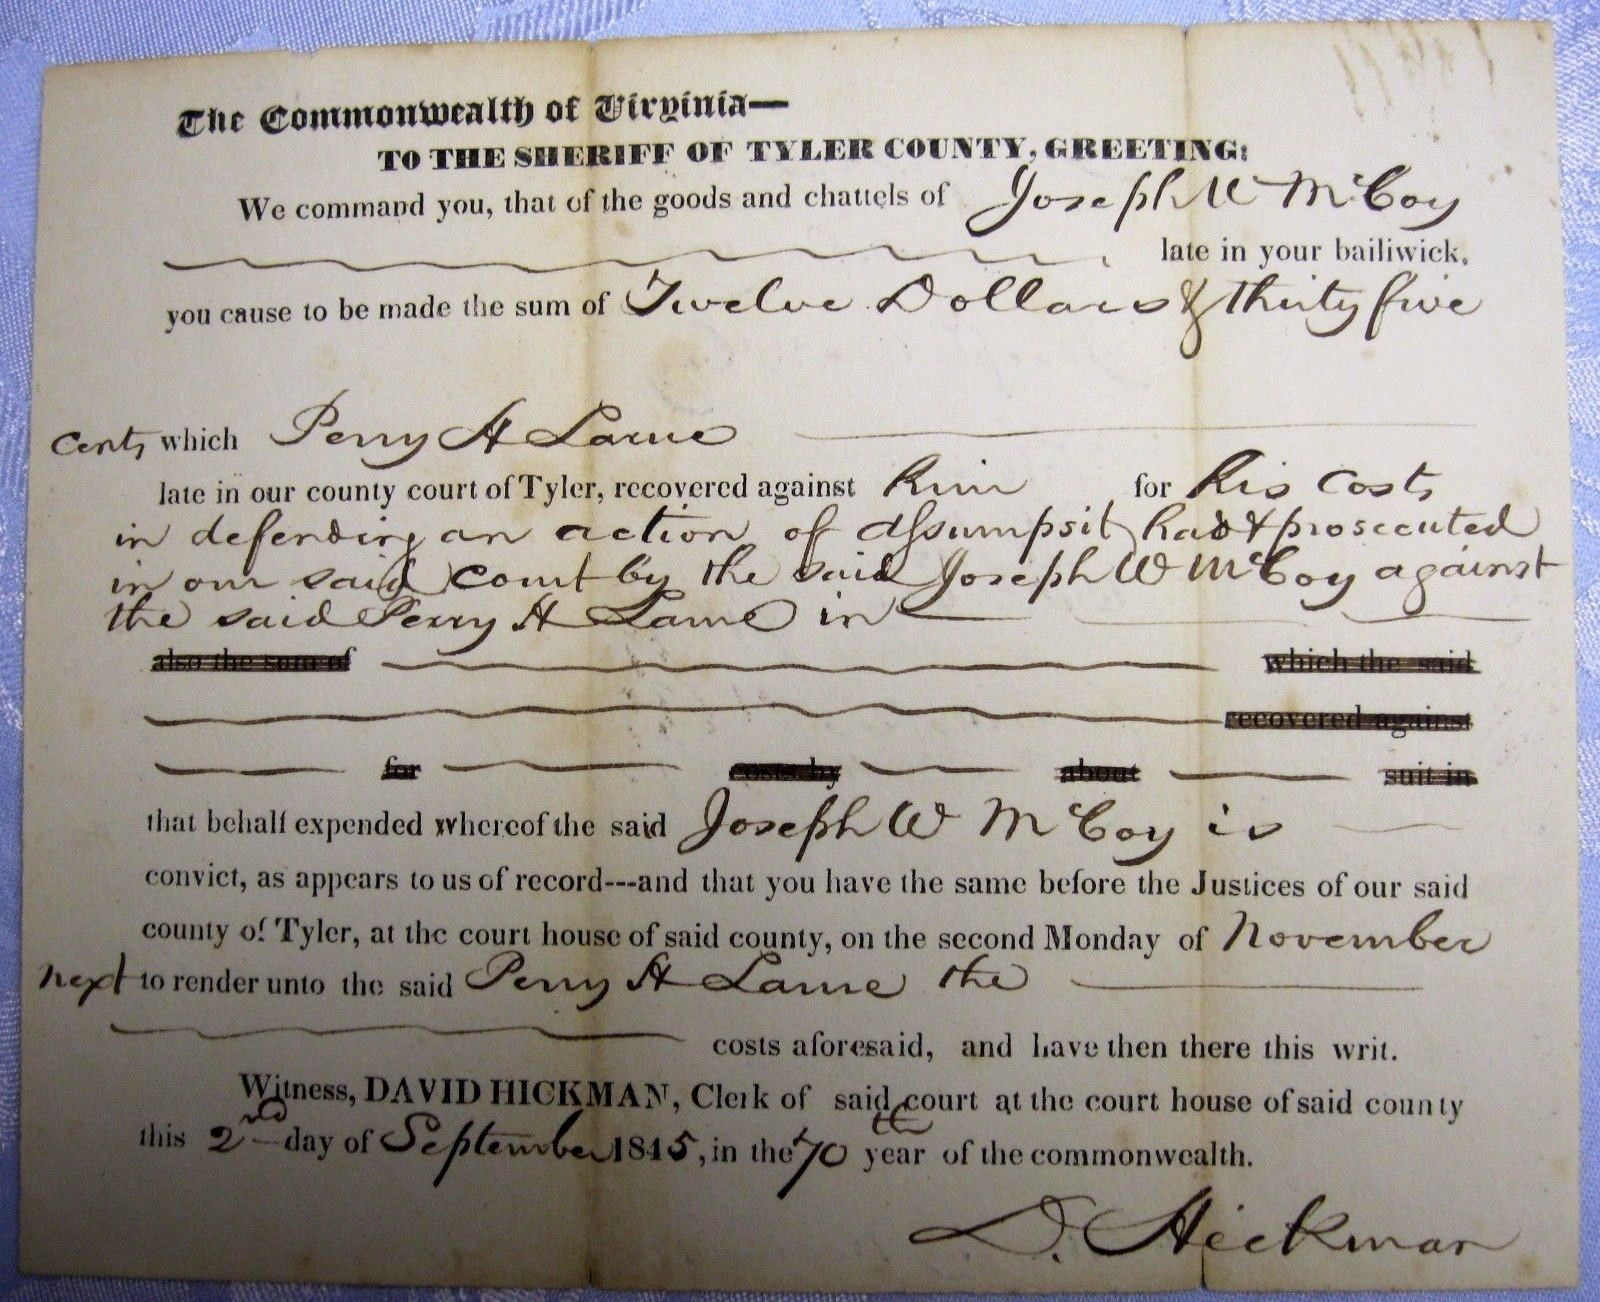 The Commonwealth of Virginia—
TO THE SHERIFF OF TYLER COUNTY, GREETING:
We command you, that of the goods and chattels of Joseph W McCoy
late in your bailiwick,
you cause to be made the sum of Twelve Dollars & thirty five
cents which Perry H Larue
late in our county court of Tyler, recovered against him for his costs
in defending an action of assumpsit had & prosecuted
in our said court by the said Joseph W McCoy against
the said Perry H Larue in
also the sum of which the said
recovered against
for costs by about suit in
that behalf expended whereof the said Joseph W McCoy is
convict, as appears to us of record---and that you have the same before the Justices of our said
county of Tyler, at the court house of said county, on the second Monday of November
next to render unto the said Perry H Larue the
costs aforesaid, and have then there this writ.
Witness, DAVID HICKMAN, Clerk of said court at the court house of said county
this 2nd day of September 1845, in the 70th year of the commonwealth.
D. Hickman